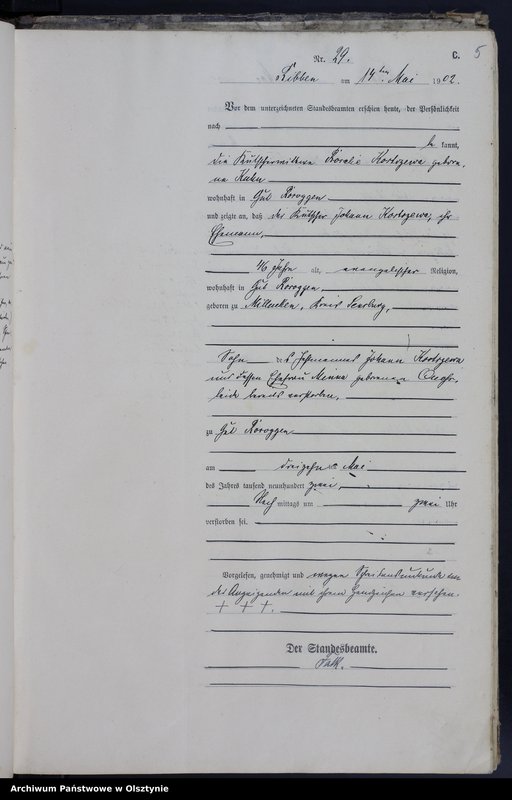 Nr. 29.
C. 5
Ribben am 14ten Mai 1902.
Vor dem unterzeichneten Standesbeamten erschien heute, der Persönlichkeit
nach
be kannt,
die Kutscherwittwe Rosalie Kortozewa gebore,
ne Kuhn
wohnhaft in Gut Koroggen
und zeigte an, daß der Kutscher Johann Kortozewa, ihr
Ehemann,
46 Jahre alt, evangelischer Religion,
wohnhaft in Gut Koroggen,
geboren zu Kreis Sensburg,
Sohn des Johann Kortozewa
und dessen Ehefrau Minna geborenen
beide bereits verstorben,
zu Gut Koroggen
am dreizehn Mai
des Jahres tausend neunhundert zwei,
Nach mittags um zwei Uhr
verstorben sei.
Vorgelesen, genehmigt und wegen
der Anzeigenden mit ihrem Handzeichen versehen.
+ + +.
Der Standesbeamte.
Archiwum Państwowe w Olsztynie